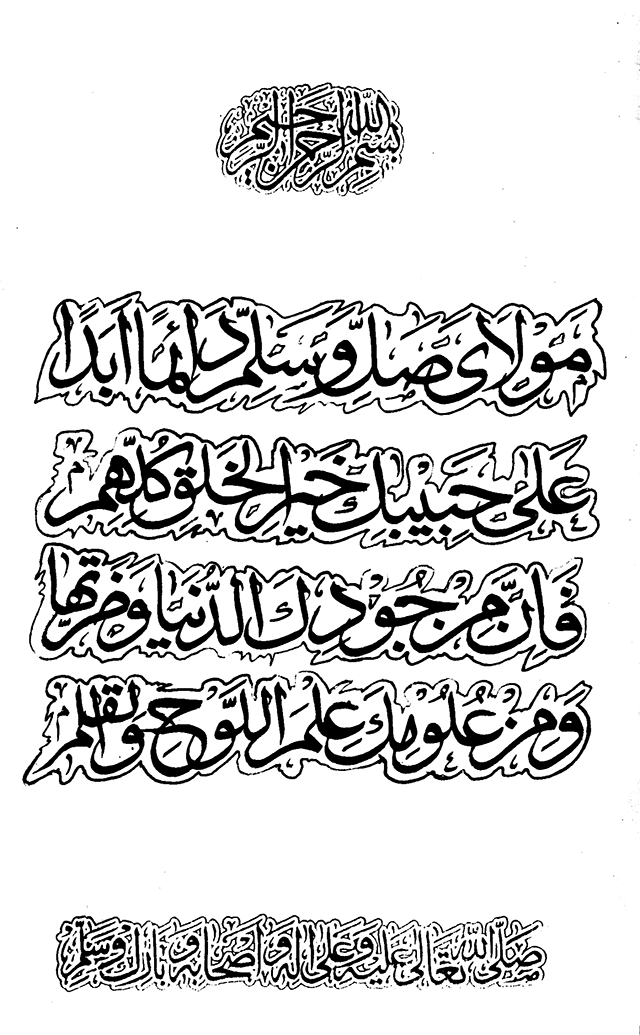 بسم الله الرحمن الرحيم
مَوْلَایَ صَلِّ وَسَلِّمْ دَائِمًا أَبَدًا
عَلٰی حَبِیْبِكَ خَیْرِ الْخَلْقِ كُلِّهِمِ
فَاِنَّ مِنْ جُوْدِكَ الدُّنْیَا وَضَرَّتَهَا
وَمِنْ عُلُوْمِكَ عِلْمَ اللَّوْحِ وَالْقَلَمِ
صَلَّی اللهُ تَعَالٰی عَلَیْهِ وَعَلٰی اٰلِهٖ وَاَصْحَابِهٖ وَبَارَكَ وَسَلَّمَ